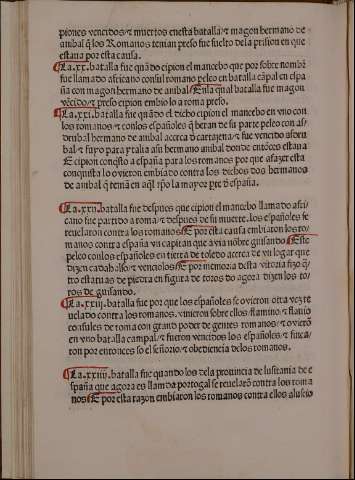 piones vencidos ⁊ muertos enesta batalla ⁊ magon hermano de
anibal q̃ los Romanos tenian preso fue suelto dela prision en que
estaua por esta causa.
La .xx. batalla fue quãdo cipion el mancebo que por sobre nombr̃
fue llamado africano consul romano peleo en batalla cãpal en espa
ña con magon hermano de anibal ⁊ En la qual batalla fue magon
vẽcido ⁊ preso cipion embio lo a roma preso.
La .xxi. batalla fue quãdo el dicho cipion el mancebo en vno con
los romanos ⁊ con los españoles q̃ eran de su parte peleo con as
drubal hermano de anibal acerca d cartajena ⁊ fue vencido asdru
bal ⁊ fuyo para ytalia asu hermano anibal donde entõces estaua
E cipion conqsto a españa para los romanos por que afazer esta
conquista lo ovieron embiado contra los dichos dos hermanos
de anibal q̃ tenia en aql tpõ la mayor pte d españa.
La .xxii. batalla fue despues que cipion el mancebo llamado afri
cano fue partido a roma ⁊ despues de su muerte. los españoles se
reuelaron contra los romanos E por esta causa embiaron los ro
manos contra españa vn capitan que avia nõbre guisando Este
peleo con los españoles en tierra de toledo acerca de vn logar que
dizen cadahalso ⁊ venciolos E por memoria desta vitoria fizo q̃
tro estatuas de piedra en figura de toros do agora dizen los to
ros de guisando.
La .xxiii. batalla fue por que los españoles se ovieron otra vez re
uelado contra los romanos. vinieron sobre ellos flamino ⁊ flauio
consules de roma con grand poder de gentes romanos ⁊ o vierõ
en vno batalla campal ⁊ fueron vencidos los españoles ⁊ finca
ron por entonces so el señorio ⁊ obediencia delos romanos.
La .xxiiii. batalla fue quando los dela prouincia de lusitania de e
spaña que agora es llamada portogal se reuelarõ contra los roma
nos E por esta razon embiaron los romanos contra ellos a luscio